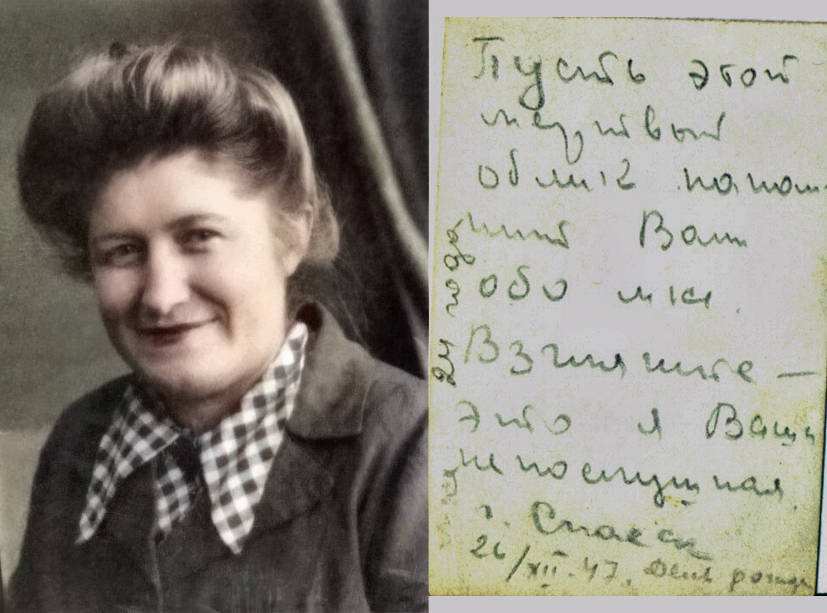 Пусть этот
мертвый
облик напом-
нит Вам
обо мне.
Взгляните —
это я Ваша
непослушная.
г. Спасск
26/XII-47. День рожде
24 года